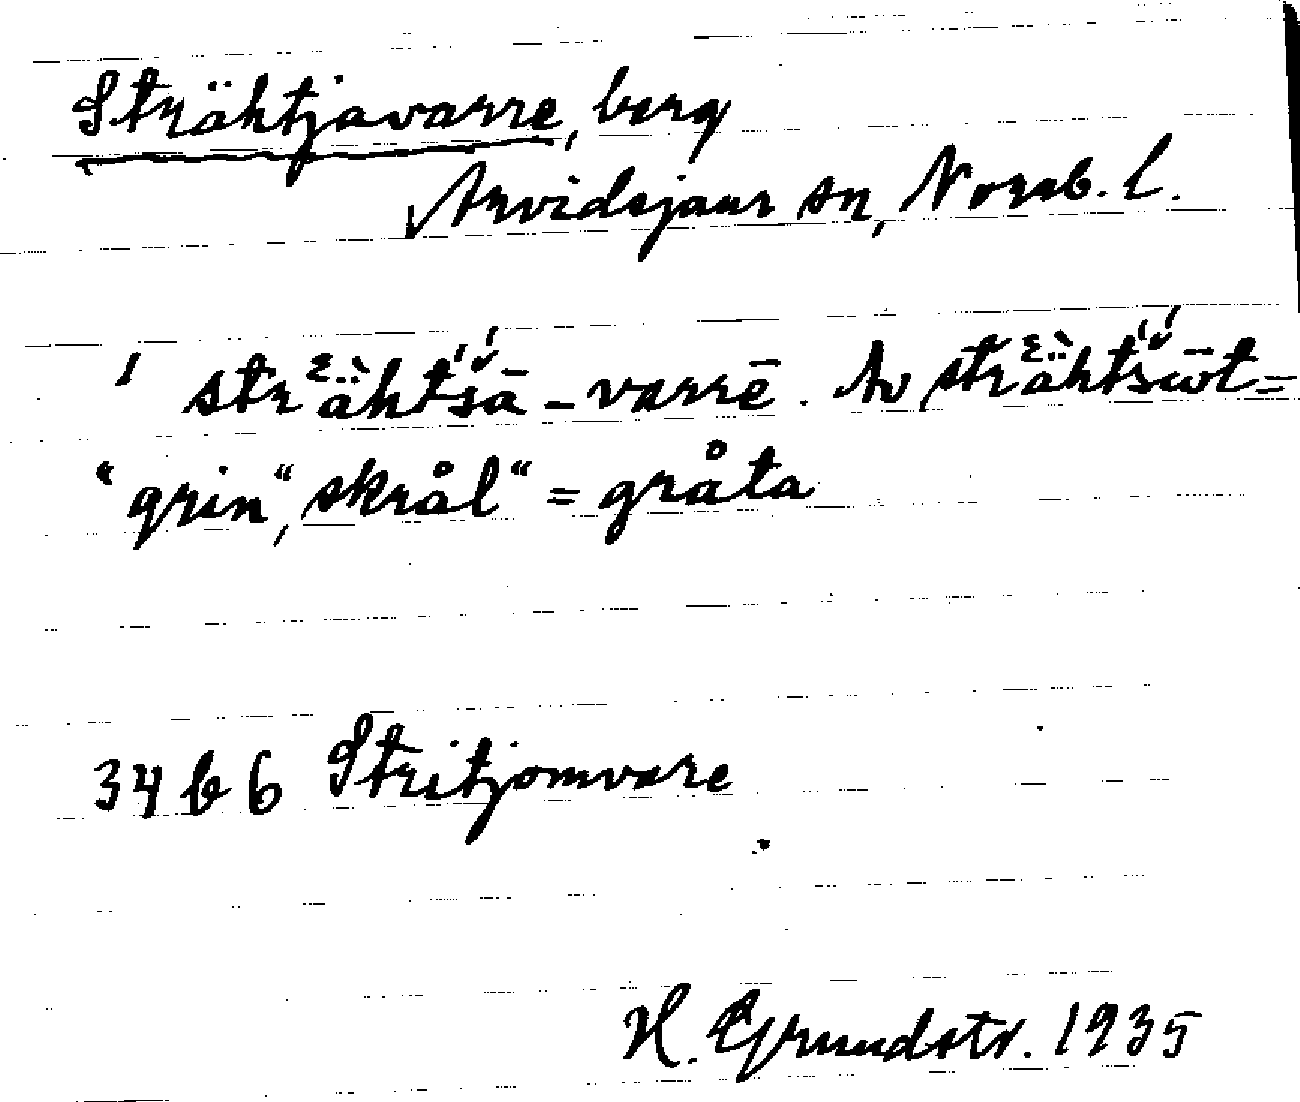 Strähtjavarre, berg
Arvidsjaur sn, Norrb. l.
1 strähtšā-varrē. Av strähtšūōt=
"grin", skrål" = gråta
34 b 6 Stritjomvare
H. Grundstr. 1935